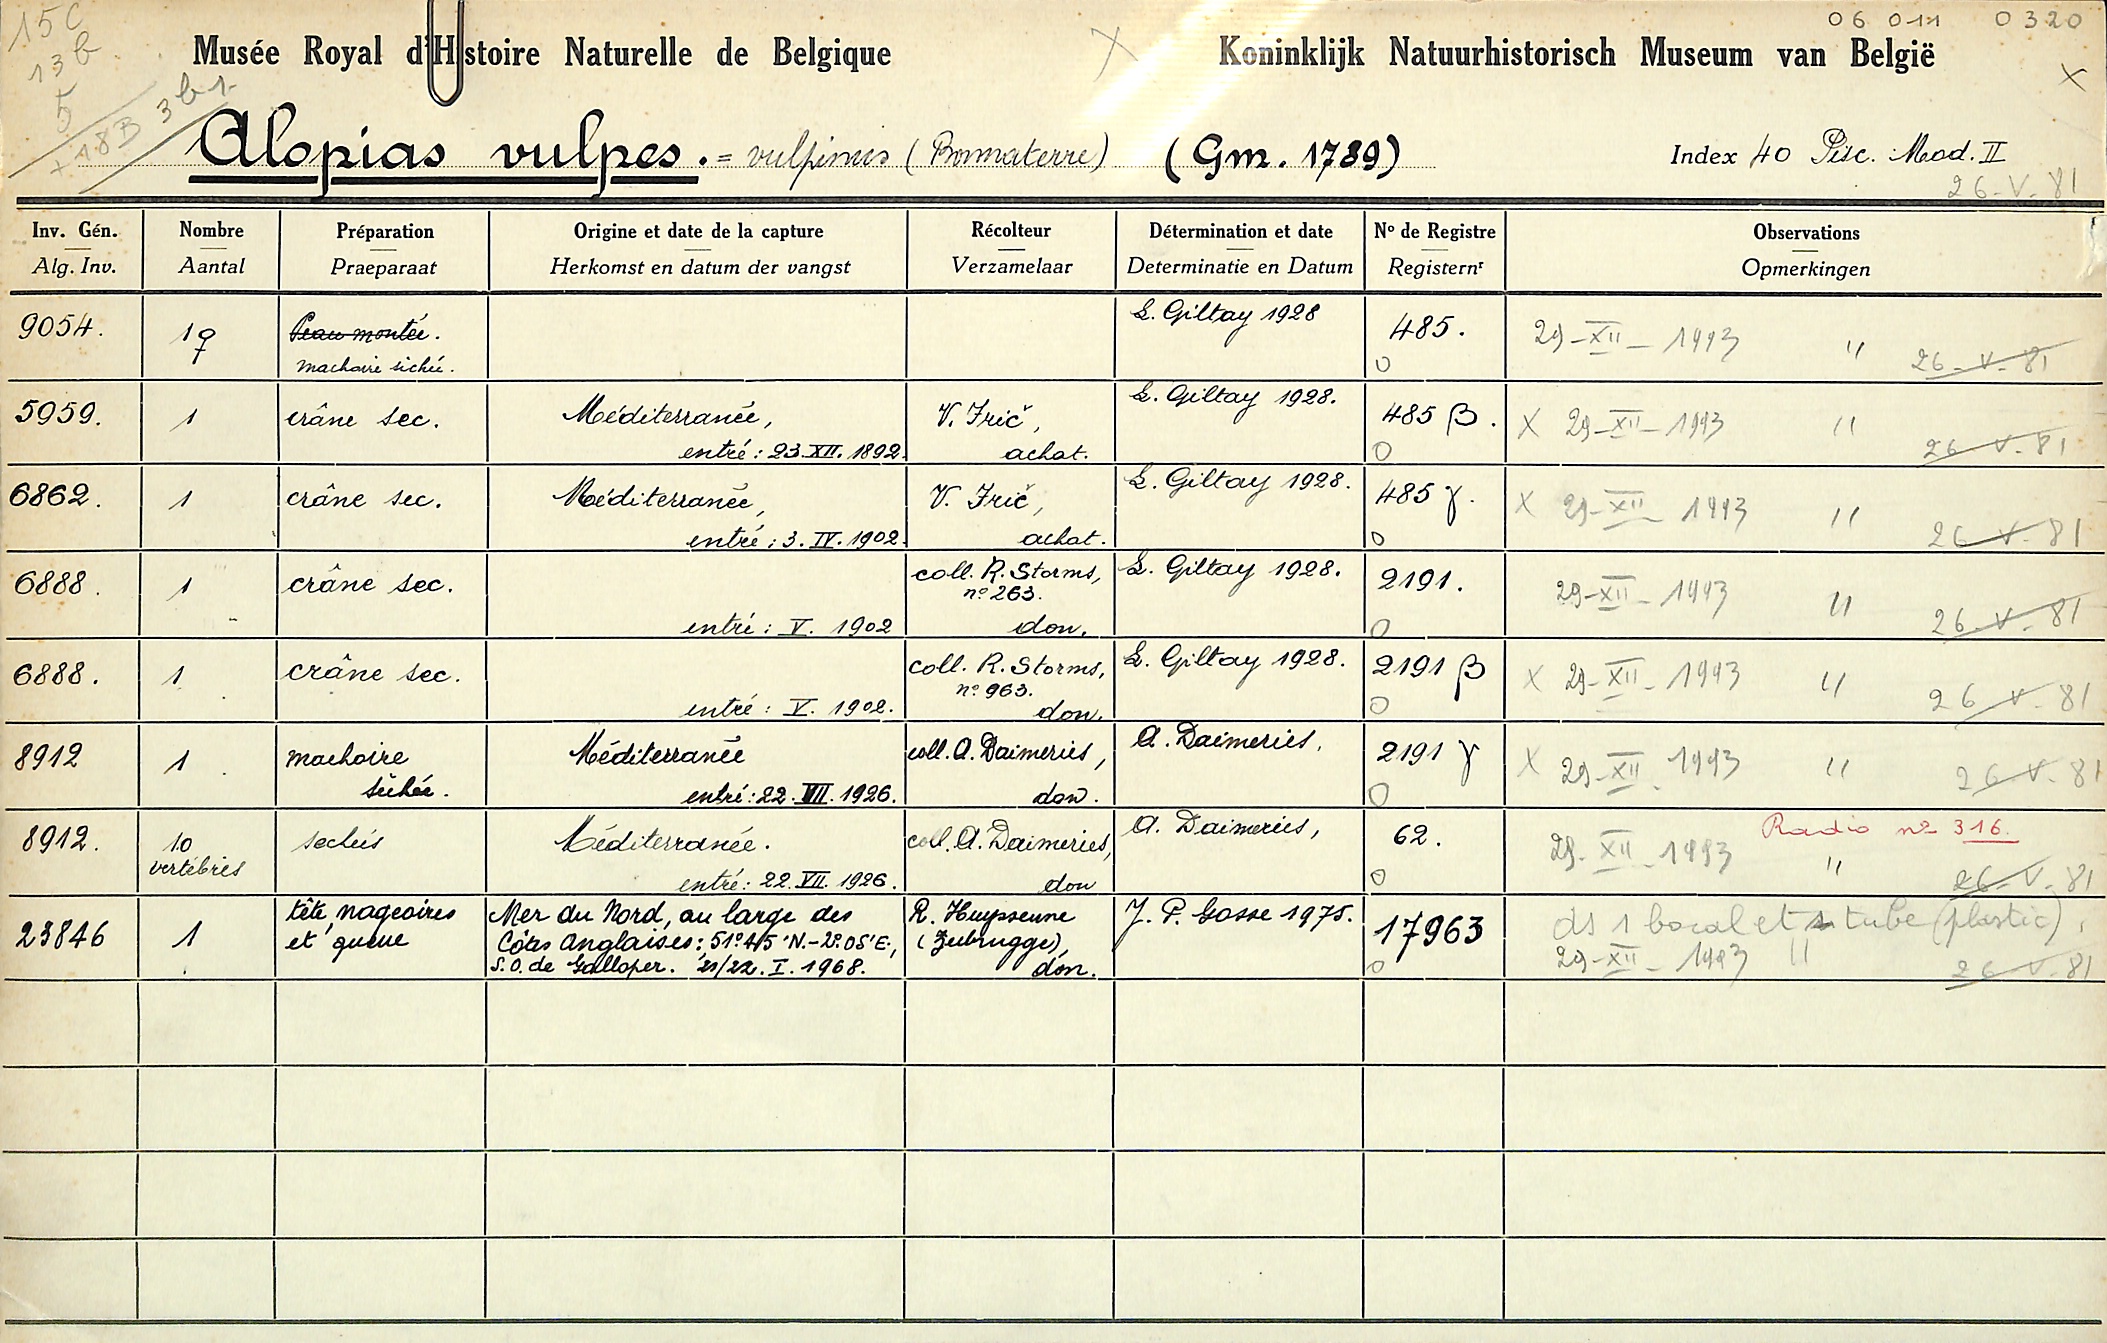 15C
13b
5
+ 18B 3b1.
06 011 0320
Musée Royal d'Histoire Naturelle de Belgique
X
Koninklijk Natuurhistorisch Museum van België
X
Alopias vulpes. = vulpinus (Bonnaterre) (Gm. 1789)
Index 40 Pisc. Mod. II
26-V-81
Inv. Gén. Nombre Préparation Origine et date de la capture Récolteur Détermination et date Nº de Registre Observations
Alg. Inv. Aantal Praeparaat Herkomst en datum der vangst Verzamelaar Determinatie en Datum Registernr Opmerkingen
9054. 1 ♀ Peau montée. L. Giltay 1928 485. 29-XII-1993 " 26-V-81
machoire sèchée. O
5959. 1 crâne sec. Méditerranée, V. Frič, L. Giltay 1928. 485 β. X 29-XII-1993 " 26-V-81
entré: 23.XII.1892. achat. O
6862. 1 crâne sec. Méditerranée, V. Frič, L. Giltay 1928. 485 γ. X 29-XII-1993 " 26-V-81
entré: 3.IV.1902. achat. O
6888. 1 crâne sec. coll. R. Storms, L. Giltay 1928. 2191. 29-XII-1993 " 26-V-81
nº 263.
entré: V. 1902 don. O
6888. 1 crâne sec. coll. R. Storms, L. Giltay 1928. 2191 β X 29-XII-1993 " 26-V-81
nº 963.
entré: V. 1902. don. O
8912 1 machoire Méditerranée coll. A. Daimeries, A. Daimeries. 2191 γ X 29-XII-1993 " 26-V-81
sèchée. entré: 22.VII.1926. don. O
8912. 10 sechés Méditerranée. coll. A. Daimeries, A. Daimeries, 62. 29-XII-1993 Radio nº 316.
vertèbres entré: 22.VII.1926. don O " 26-V-81
23846 1 tête nageoires Mer du Nord, au large des R. Huysseune J. P. Gosse 1975. 17963 ds 1 bocal et 1 tube (plastic).
et queue Côtes Anglaises: 51º45'N.-2º05'E., (Zeebrugge), 29-XII-1993 " 26-V-81
S.O. de Galloper. 21/22.I.1968. don. O